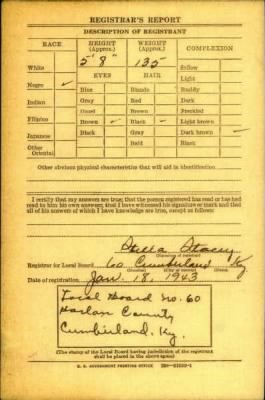 REGISTRAR'S REPORT
DESCRIPTION OF REGISTRANT
RACE
HEIGHT
(Approx.)
WEIGHT
(Approx.)
COMPLEXION
5' 8"
135
White
Sallow
EYES
HAIR
Light
Negro ✓
Blue
Blonde
Ruddy
Indian
Gray
Red
Dark
Hazel
Brown
Freckled
Filipino
Brown ✓
Black ✓
Light brown
Japanese
Black
Gray
Dark brown ✓
Other
Oriental
Bald
Black
Other obvious physical characteristics that will aid in identification
I certify that my answers are true; that the person registered has read or has had
read to him his own answers; that I have witnessed his signature or mark and that
all of his answers of which I have knowledge are true, except as follows:
Stella Stacey
(Signature of registrar)
Registrar for Local Board 60 Cumberland Ky
(Number) (City or county) (State)
Date of registration Jan. 18, 1943
Local Board No. 60
Harlan County
Cumberland, Ky.
(The stamp of the Local Board having jurisdiction of the registrant
shall be placed in the above space.)
U. S. GOVERNMENT PRINTING OFFICE